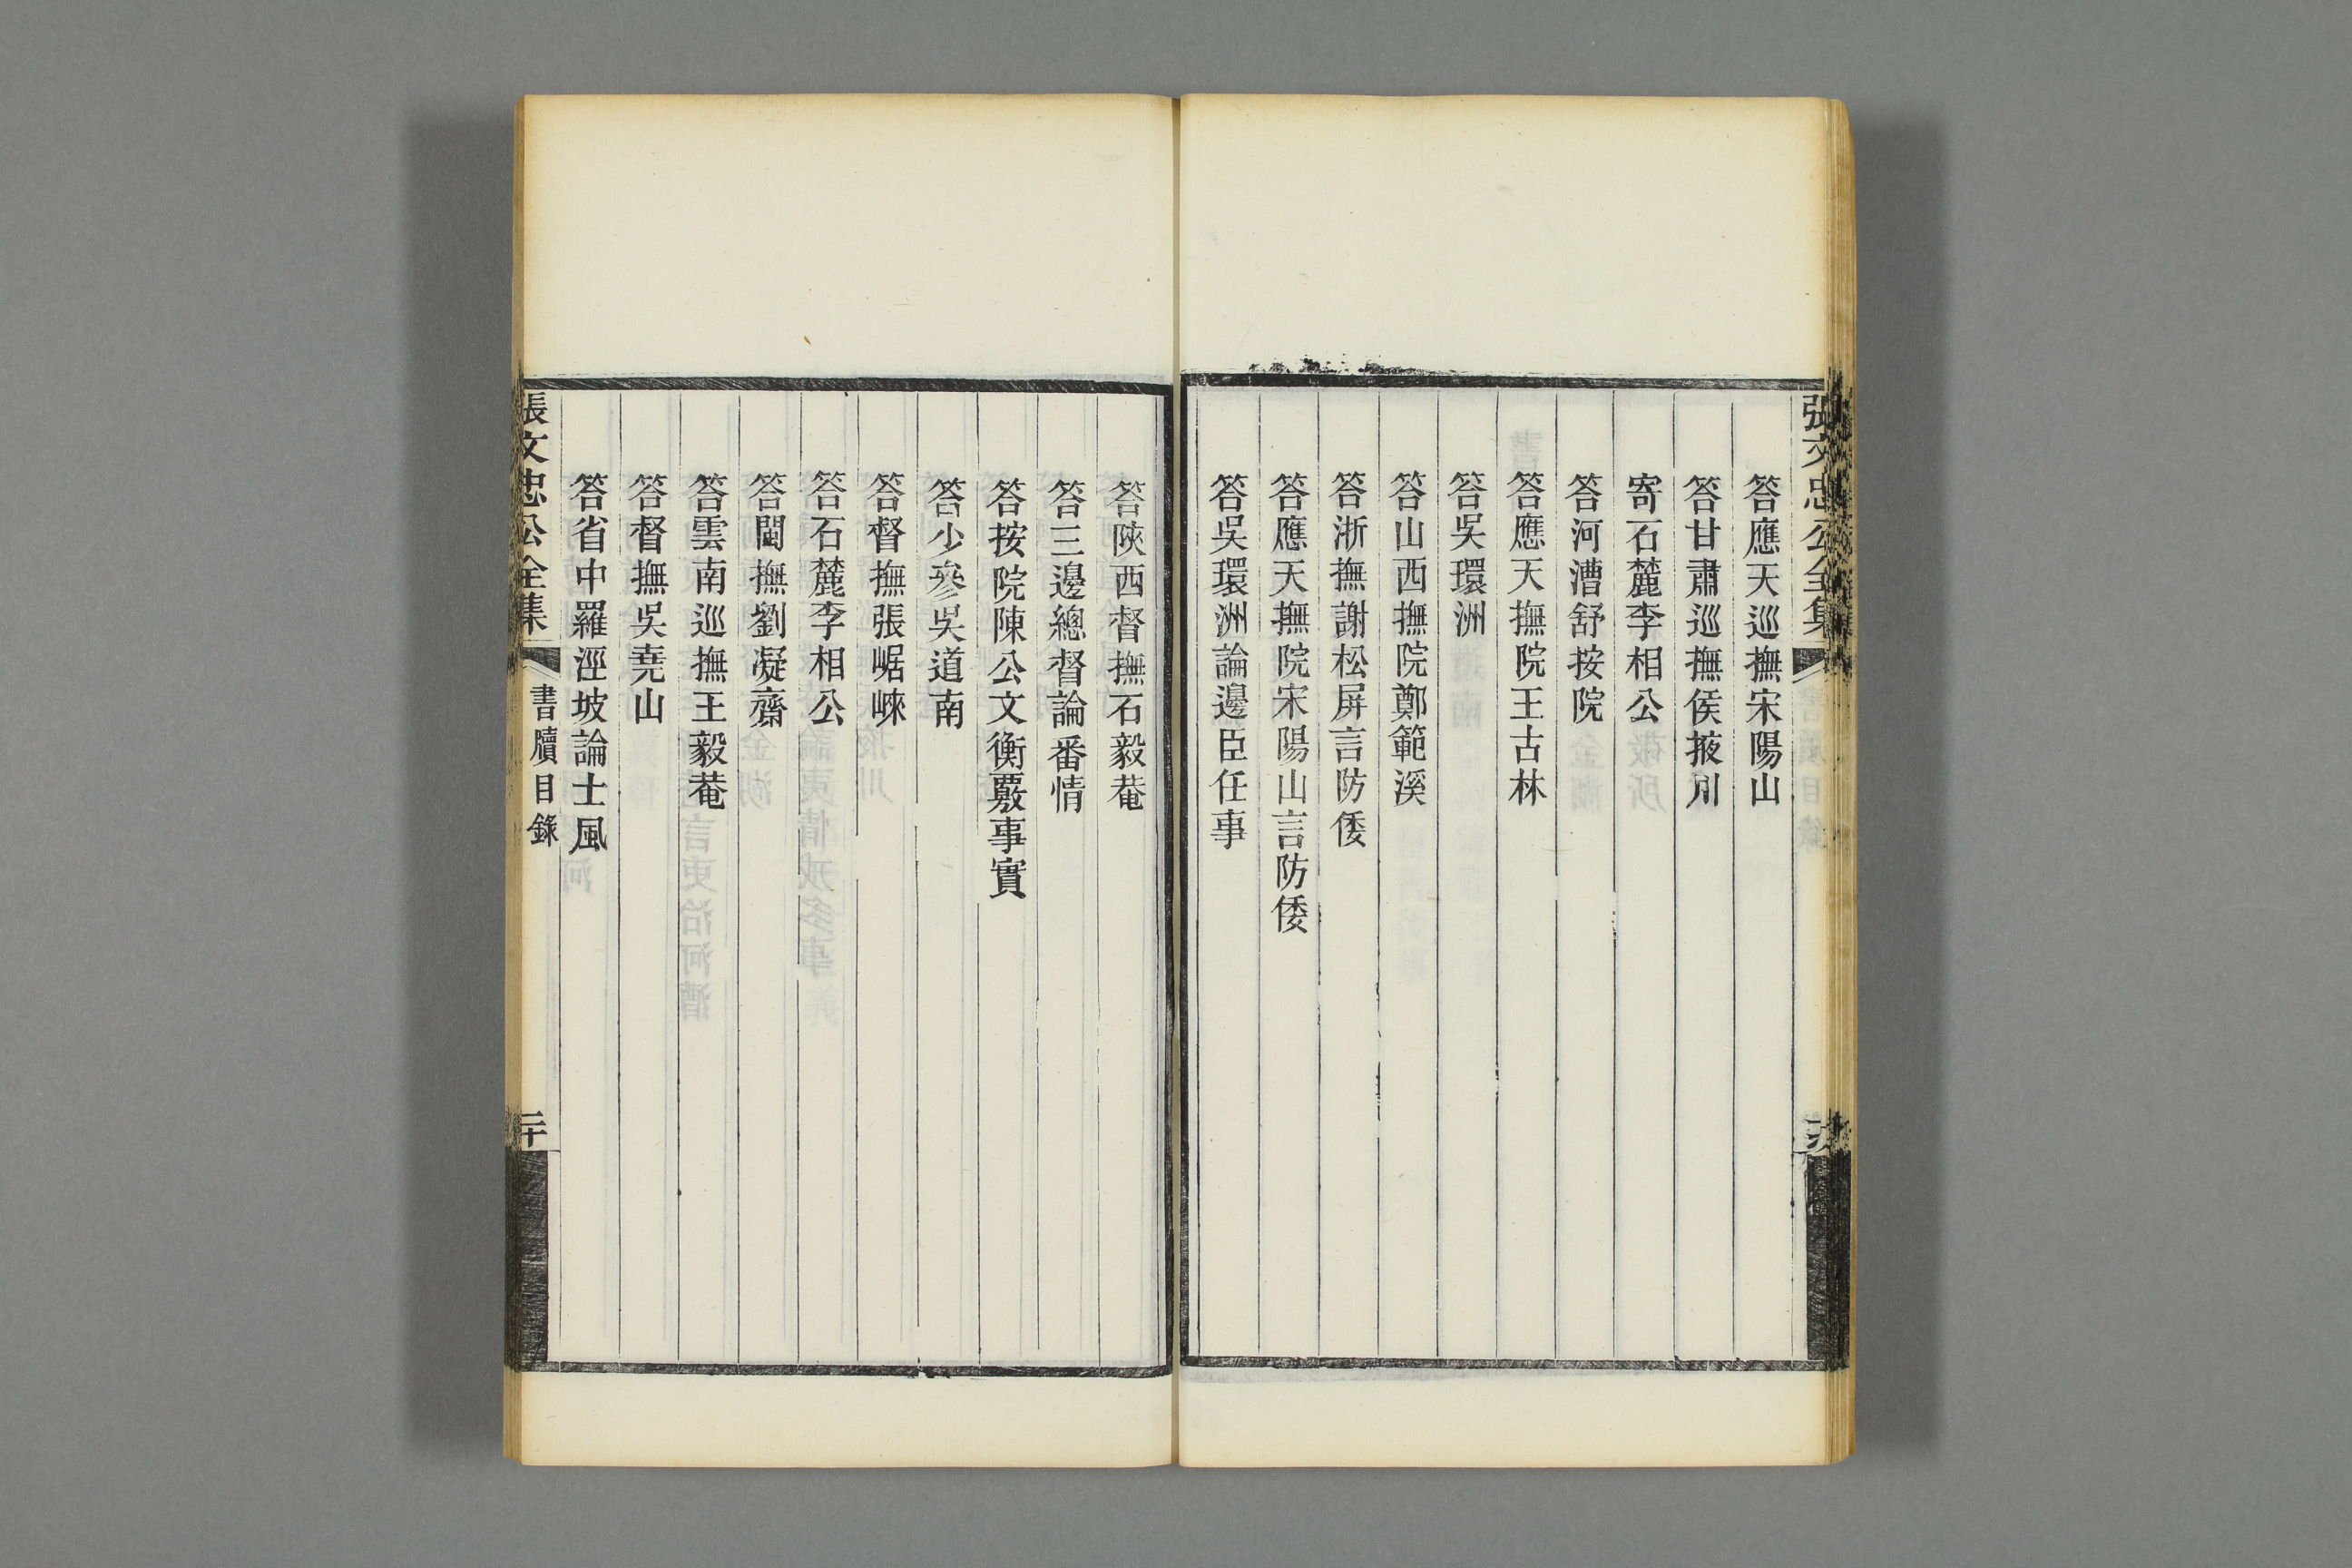 張文忠公全集
答應天巡撫宋陽山
答甘肅巡撫侯掖川
寄石麓李相公
答河漕舒按院
答應天撫院王古林
答吳環洲
答山西撫院鄭範溪
答浙撫謝松屏言防倭
答應天撫院宋陽山言防倭
答吳環洲論邊臣任事
答陝西督撫石毅菴
答三邊總督論番情
答按院陳公文衡覈事實
答少參吳道南
答督撫張崌崍
答石麓李相公
答閩撫劉凝齋
答雲南巡撫王毅菴
答督撫吳堯山
答省中羅涇坡論士風
張文忠公全集
書牘目錄
二十